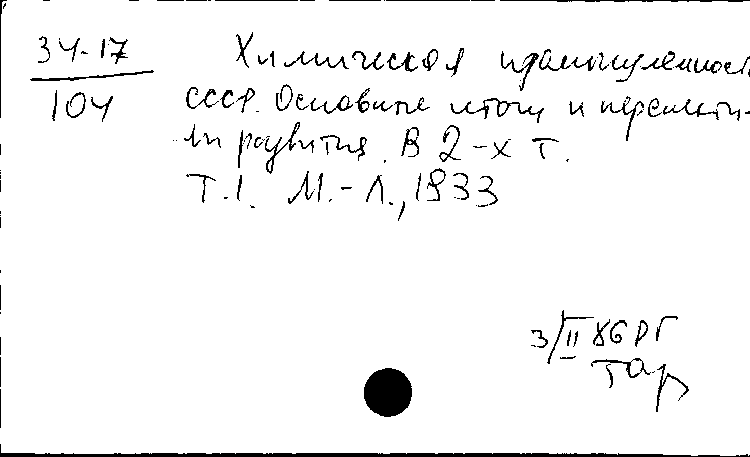 34-17
104
Химическая промышленность
СССР. Основные итоги и перспекти-
вы развития. В 2-х т.
Т.1. М.-Л., 1933
3/II 86 РГ
Тар